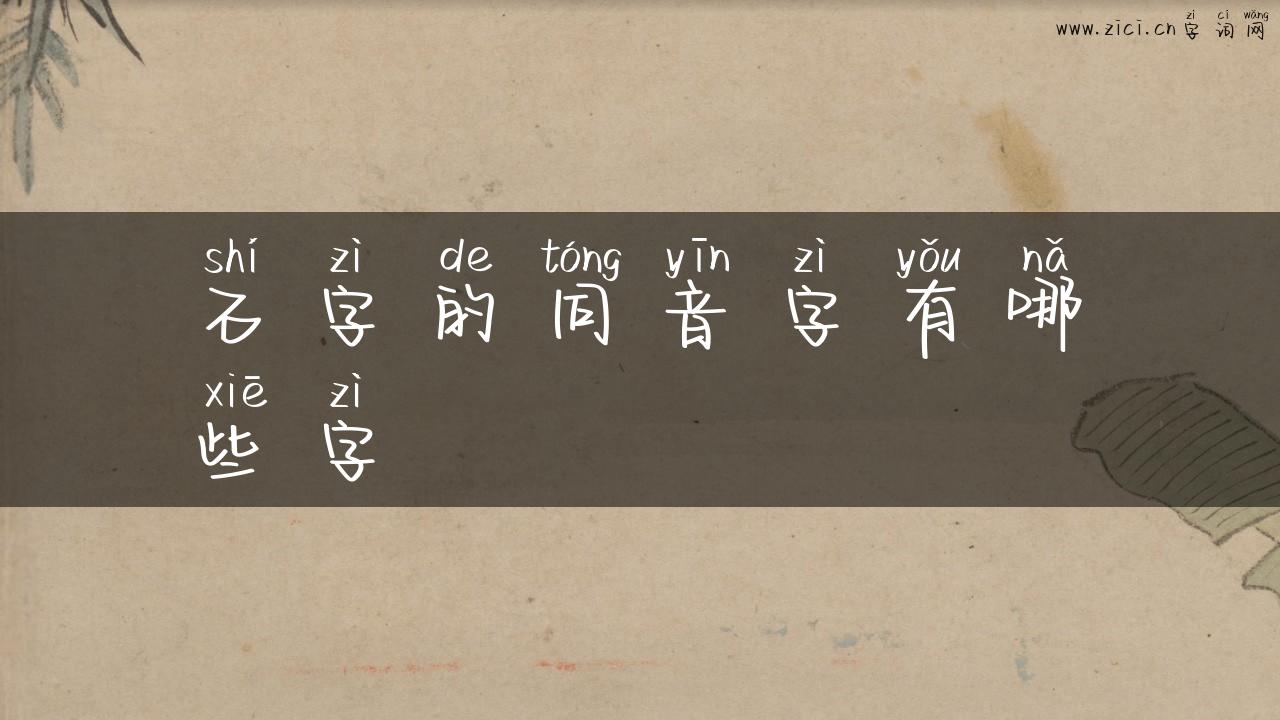 zì cí wǎng
www.zici.cn 字词网
shí zì de tóng yīn zì yǒu nǎ
石字的同音字有哪
xiē zì
些字